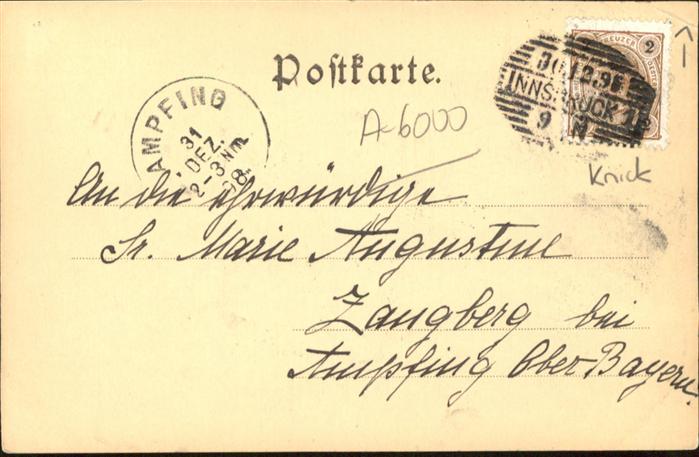 KREUZER
2
30.12.98
INNSBRUCK 1
9 N
Postkarte.
AMPFING
31
DEZ.
2-3 NM
98
A-6000
Knick
An die ehrwürdige
Sr. Marie Augustine
Zangberg bei
Ampfing Ober-Bayern.